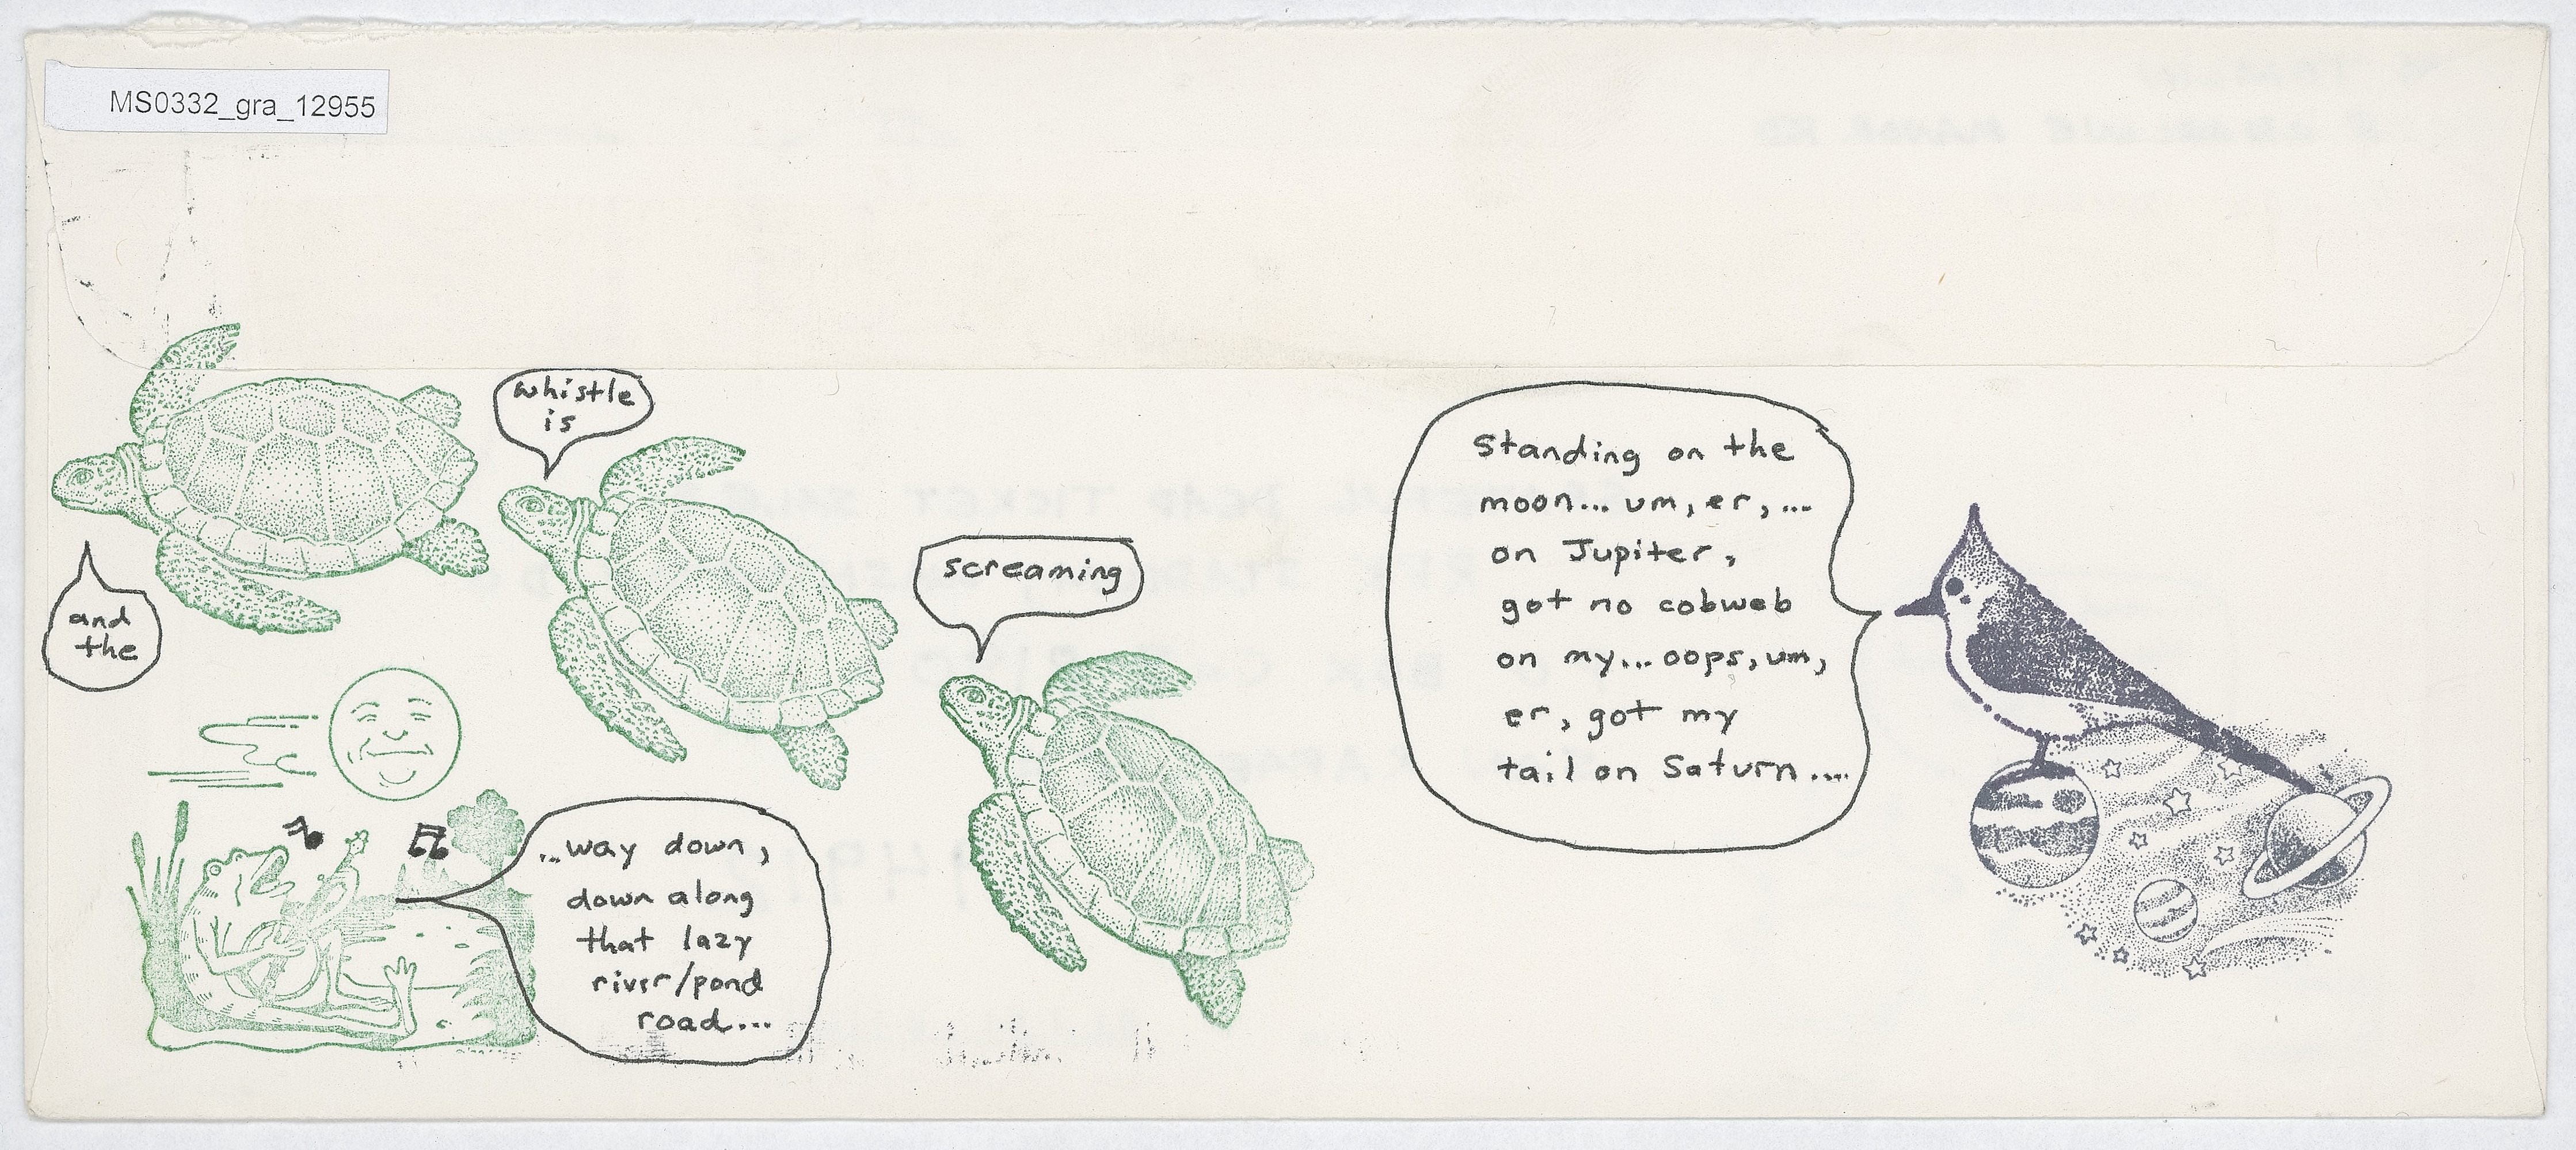 MS0332_gra_12955
and
the
whistle
is
screaming
...way down,
down along
that lazy
river/pond
road...
Standing on the
moon... um, er, ...
on Jupiter,
got no cobweb
on my... oops, um,
er, got my
tail on Saturn....